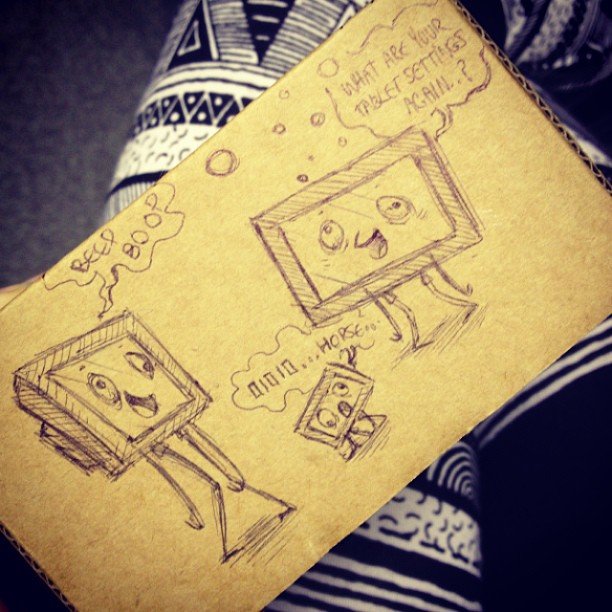 WHAT ARE YOUR
TABLET SETTINGS
AGAIN..?
BEEP
BOOP
01010...HORSE..?